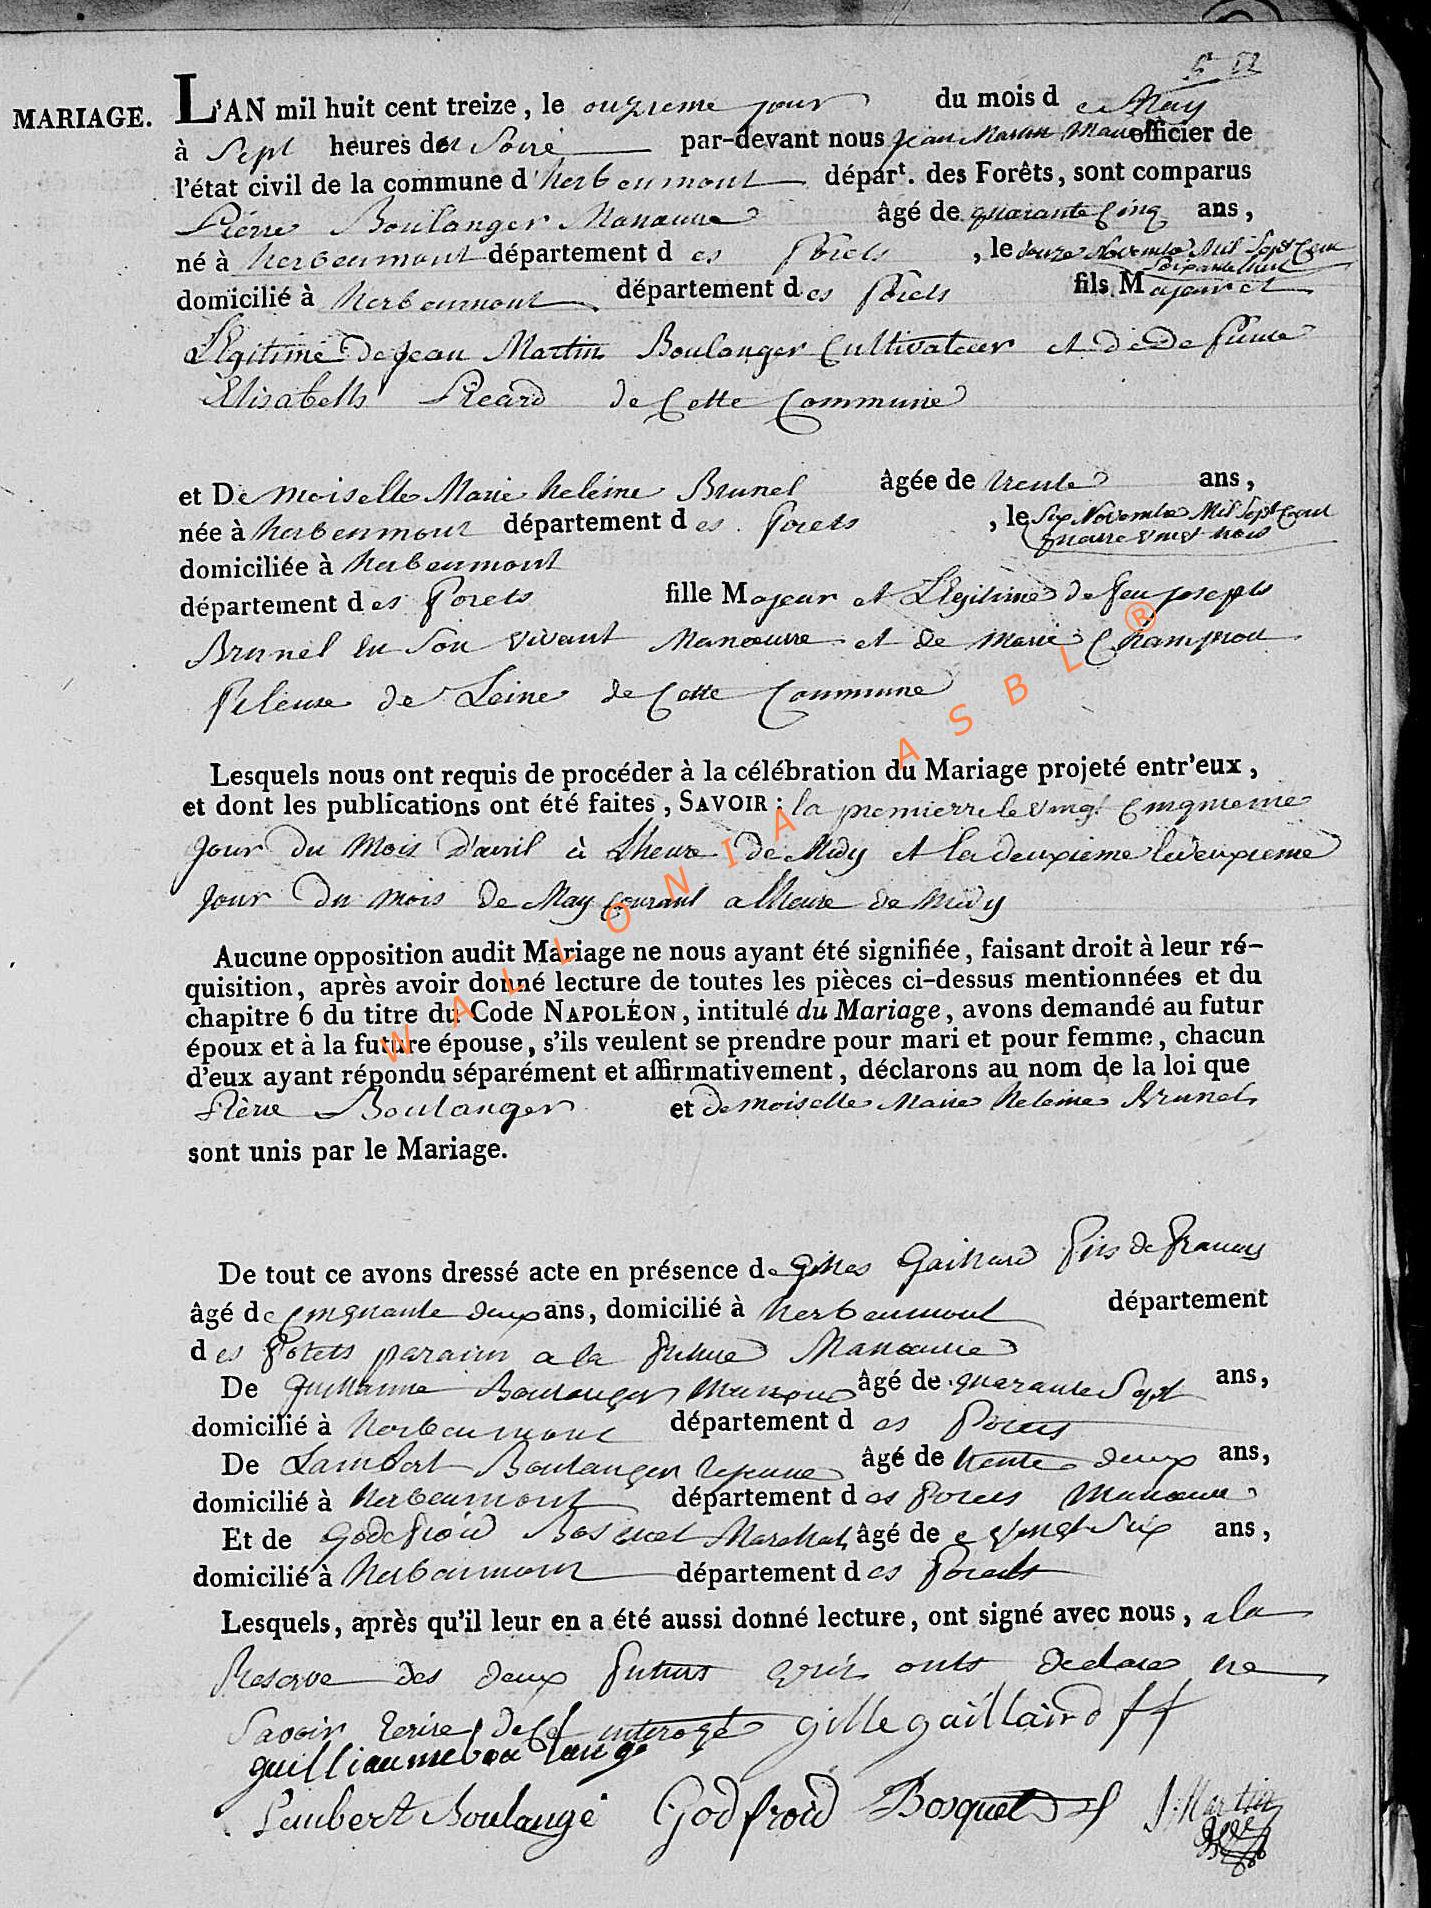 MARIAGE.
L'AN mil huit cent treize, le onzieme jour du mois de May
à Sept heures du Soire par-devant nous jean Martin officier de
l'état civil de la commune d'herbeumont départ. des Forêts, sont comparus
Piérre Boulanger Manœuvre âgé de quarante Cinq ans,
né à herbeumont département des Forets, le Novembre Mil Sept Cent
Soixante huit
domicilié à herbeumont département des Forets fils Majeur et
Légitime de jean Martin Boulanger Cultivateur et de
Elisabeth Picard de Cette Commune
et Demoiselle Marie heleine Brunel âgée de trente ans,
née à herbeumont département des Forets, le Six Novembre Mil Sept Cent
quatre vingt trois
domiciliée à herbeumont
département des Forets fille Majeur et Légitime de feu joseph
Brunel en Son vivant Manœuvre et de Marie
fileuse de Leine de Cette Commune
Lesquels nous ont requis de procéder à la célébration du Mariage projeté entr'eux,
et dont les publications ont été faites, SAVOIR : la premierre le vingt Cinqmeme
jour du Mois d'avril à L'heure de Midy et la deuxieme le deuxieme
jour du mois de May Courant a lheure de midy
Aucune opposition audit Mariage ne nous ayant été signifiée, faisant droit à leur ré-
quisition, après avoir donné lecture de toutes les pièces ci-dessus mentionnées et du
chapitre 6 du titre du Code NAPOLÉON, intitulé du Mariage, avons demandé au futur
époux et à la future épouse, s'ils veulent se prendre pour mari et pour femme, chacun
d'eux ayant répondu séparément et affirmativement, déclarons au nom de la loi que
Piérre Boulanger et demoiselle Marie heleine Brunel
sont unis par le Mariage.
De tout ce avons dressé acte en présence de Gilles Gaillard fils de francois
âgé de Cinquante deux ans, domicilié à herbeumont département
des Forets parain a la future Manœuvre
De Guillaume Boulanger âgé de quarante Sept ans,
domicilié à herbeumont département des Forets
De Lambert Boulanger lejeune âgé de trente deux ans,
domicilié à herbeumont département des Forets Manœuvre
Et de Godefroid Bosquet Marechal âgé de vingt Six ans,
domicilié à herbeumont département des Forets
Lesquels, après qu'il leur en a été aussi donné lecture, ont signé avec nous, a la
Reserve des deux futurs onts declare ne
Savoir Ecrire de Ce interogé gille gaillaird
guilliaume boulange
Lambert Boulangé Godfroid Bosquet J. Martin
WALLONIA ASBL ®